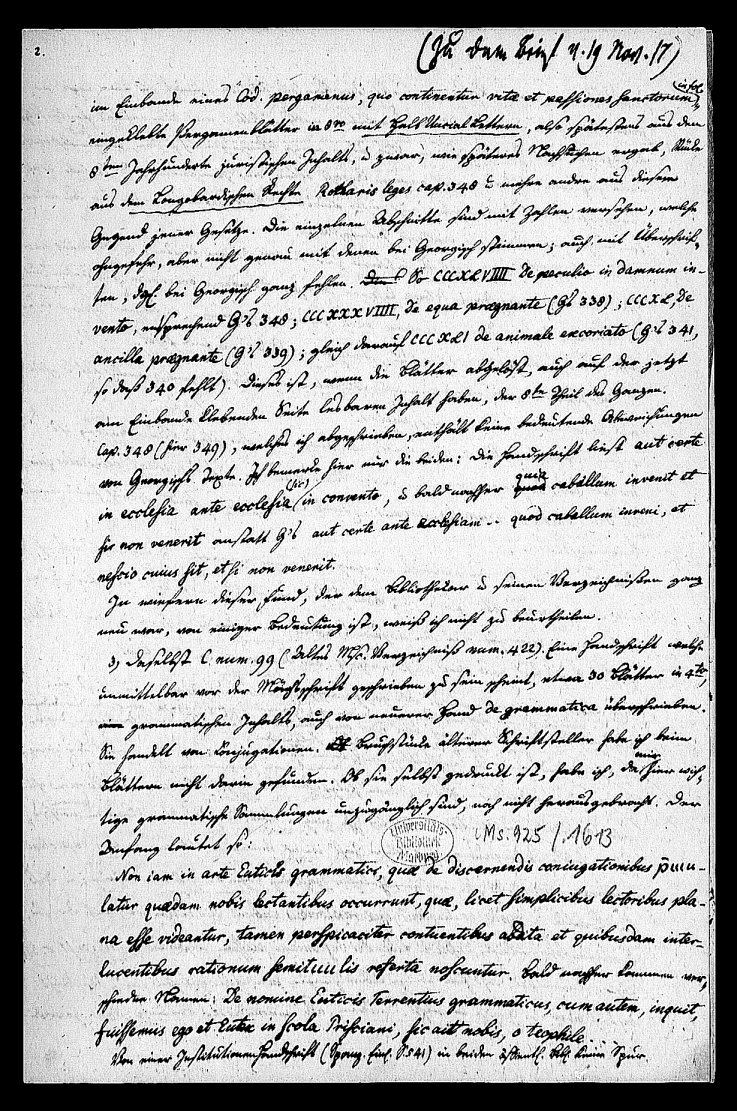 2.
(Zu dem Brief v. 19 Nov. 17)
im Einbande eines Cod. pergamenus, quo continentur vitae et passiones sanctorum (in fol.)
eingeklebte Pergamentblätter in 8vo mit Halb Uncial Lettern, also spätestens aus dem
8ten Jahrhunderte juristischen Inhalts, u zwar, wie späteres Nachsehen ergab, Stücke
aus dem Longobardischen Rechte Rotharis leges cap. 348 u mehre andre aus dieser
Gegend jener Gesetze. Die einzelnen Abschnitte sind mit Zahlen versehen, welche
ohngefähr, aber nicht genau mit denen bei Georgisch stimmen; auch mit Überschrif-
ten, die bei Georgisch ganz fehlen. So CCCXLVIIII De peculio in damnum in-
vento, entsprechend G's 348; CCCXXXVIIII, De equa praegnante (G's 338); CCCXL, De
ancilla praegnante (G's 339); gleich darauf CCCXLI de animale excoriato (G's 341,
so daß 340 fehlt). Dieses ist, wenn die Blätter abgelöst, auch auf der jetzt
am Einbande klebenden Seite lesbaren Inhalt haben, der 8te Theil des Ganzen.
Cap. 348 (hier 349), welches ich abgeschrieben, enthält keine bedeutende Abweichungen
von Georgisch's Texte. Ich bemerke hier nur die beiden: die Handschrift liest aut certe
in ecclesia ante ecclesia (sic) in convento, u bald nachher quia caballum invenit et
sic non venerit anstatt G's aut certe ante ecclesiam .. quod caballum inveni, et
nescio cuius sit, et si non venerit.
In wiefern dieser Fund, der dem Bibliothekar u seinen Verzeichnißen ganz
neu war, von einiger Bedeutung ist, weiß ich nicht zu beurtheilen.
3) Daselbst C. num. 99 (Altes Msc. Verzeichniß num. 422). Eine Handschrift welche
unmittelbar vor der Mönchsschrift geschrieben zu sein scheint, etwa 30 Blätter in 4to,
grammatischen Inhalts, auch von neuerer Hand de grammatica überschrieben.
Sie handelt von Conjugationen. Bruchstücke älterer Schriftsteller habe ich beim
Blättern nicht darin gefunden. Ob sie selbst gedruckt ist, habe ich, da mir hier wich-
tige grammatische Sammlungen unzugänglich sind, noch nicht herausgebracht. Der
Anfang lautet so:
Universitäts-
Bibliothek
Marburg
Ms. 925/1613
Non iam in arte Euticis grammatici, quae de discernendis coniugationibus
latur quaedam nobis lectantibus occurrunt, quae, licet simplicibus lectoribus pla-
na esse videantur, tamen perspicaciter contuentibus abdita et quibusdam inter-
lucentibus rationum semitulis referta noscuntur. Bald nachher kommen ver-
schiedene Namen: De nomine Euticis Terrentius grammaticus, cum autem, inquit,
fuissemus ego et Eutex in scola Prisciani, sic ait nobis, o teophile
Von einer Institutionenhandschrift (Spang. Einl. S. 541) in beiden öffentl. Bibl. keine Spur.